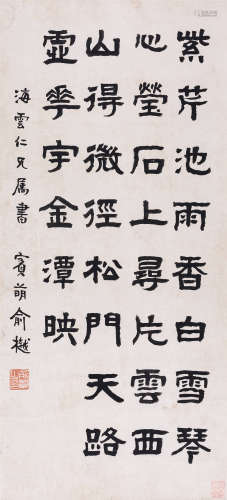 紫芹池雨香白雪琴
心瑩石上尋片雲西
山得微徑松門天路
虛華宇金潭映
海雲仁兄屬書 賓萌俞樾